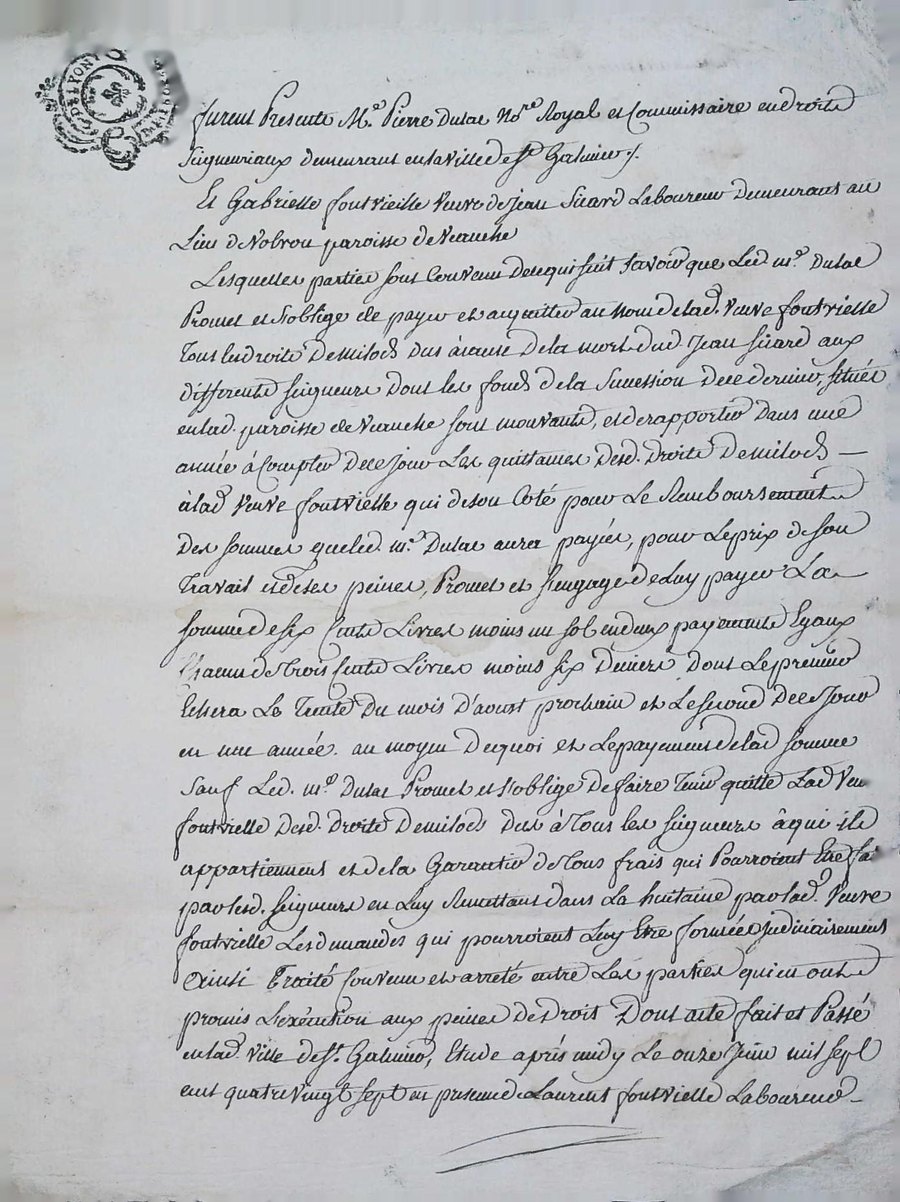 DE LYON
furent Presents Me. Pierre Dulac Nore. Royal et Commissaire en droits
Seigneuriaux demeurant en la ville de St. Galmier ./.
Et Gabrielle fontvieille Veuve de Jean Sicard Laboureur Demeurant au
Lieu de Nobrou paroisse de Veauche
Lesquelles parties sont Convenu de ce qui suit savoir que Led. me. Dulac
Promet et s'oblige de payer et acquitter au nom de lad. Veuve fontvielle
Tous les droits de milods dus à cause de la mort dud. Jean Sicard aux
differents seigneurs dont les fonds de la Succession de ce dernier, situés
en lad. paroisse de Veauche sont mouvants, et de rapporter dans une
année à Compter de ce Jour Les quittances desd. Droits de milods —
à lad. Veuve fontvielle qui de son Coté pour Le Remboursement
Des sommes que led. me. Dulac aura payées, pour Le prix de son
Travail et de ses peines, Promet et s'engage de Luy payer La
somme de six Cents Livres moins un sol en deux payements Egaux
Chacun de trois Cents Livres moins six deniers dont Le premier
Echera Le Trente du mois D'aoust prochain et Le second de ce Jour
en une année. au moyen de quoi et Le payement de lad. somme
Sauf Led. me. Dulac Promet et s'oblige de faire Tenir quitte Lad. Veu
fontvielle desd. Droits de milods dus à Tous les seigneurs à qui ils
appartiennent et de la Garantir de tous frais qui Pourroient Etre fai
par lesd. seigneurs en Luy Remettant dans La huitaine par lad. Veuve
fontvielle Les demandes qui pourroient Luy Etre formées Judiciairement
Ainsi Traité Convenu et arreté entre Les parties qui en ont
promis L'exécution aux peines de Droit Dont acte fait et Passé
en lad. Ville de St. Galmier, Etude après midy Le onze Juin mil sept
cent quatre vingt sept en presence de Laurent fontvielle Laboureur —